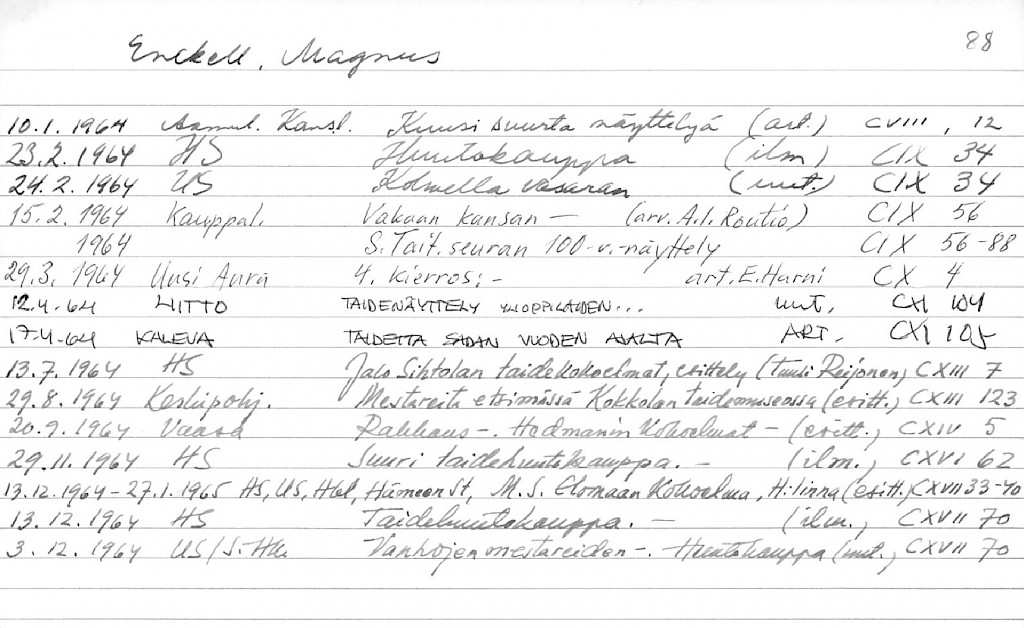 88
Enckell, Magnus
10.1.1964 Aamul. Kansl. Kuusi suurta näyttelyä (art.) CVIII, 12
23.2.1964 HS Huutokauppa (ilm) CIX 34
24.2.1964 US Kolmella vasaran (uut.) CIX 34
15.2.1964 Kauppal. Vakaan kansan — (arv. A.I. Routio) CIX 56
1964 S. Tait. seuran 100-v. näyttely CIX 56-88
29.3.1964 Uusi Aura 4. kierros: - art. E. Harni CX 4
12.4.64 LIITTO TAIDENÄYTTELY YLIOPPILAIDEN... uut. CXI 104
17.4.64 KALEVA TAIDETTA SADAN VUODEN AJALTA ART. CXI 105
13.7.1964 HS Jalo Sihtolan taidekokoelmat, esittely (Tuuli Reijonen) CXIII 7
29.8.1964 Keskipohj. Mestareita etsimässä Kokkolan taidemuseossa (esitt.) CXIII 123
20.9.1964 Vaasa Rakkaus -. Hedmanin kokoelmat - (esitt.) CXIV 5
29.11.1964 HS Suuri taidehuutokauppa. - (ilm.) CXVI 62
13.12.1964 - 27.1.1965 HS, US, Hbl, Hämeen S, M.S. Elomaan kokoelma, H:linna (esitt.) CXVII 33-40
13.12.1964 HS Taidehuutokauppa. - (ilm.) CXVII 70
3.12.1964 US/ Vanhojen mestareiden -. Huutokauppa (uut.) CXVII 70